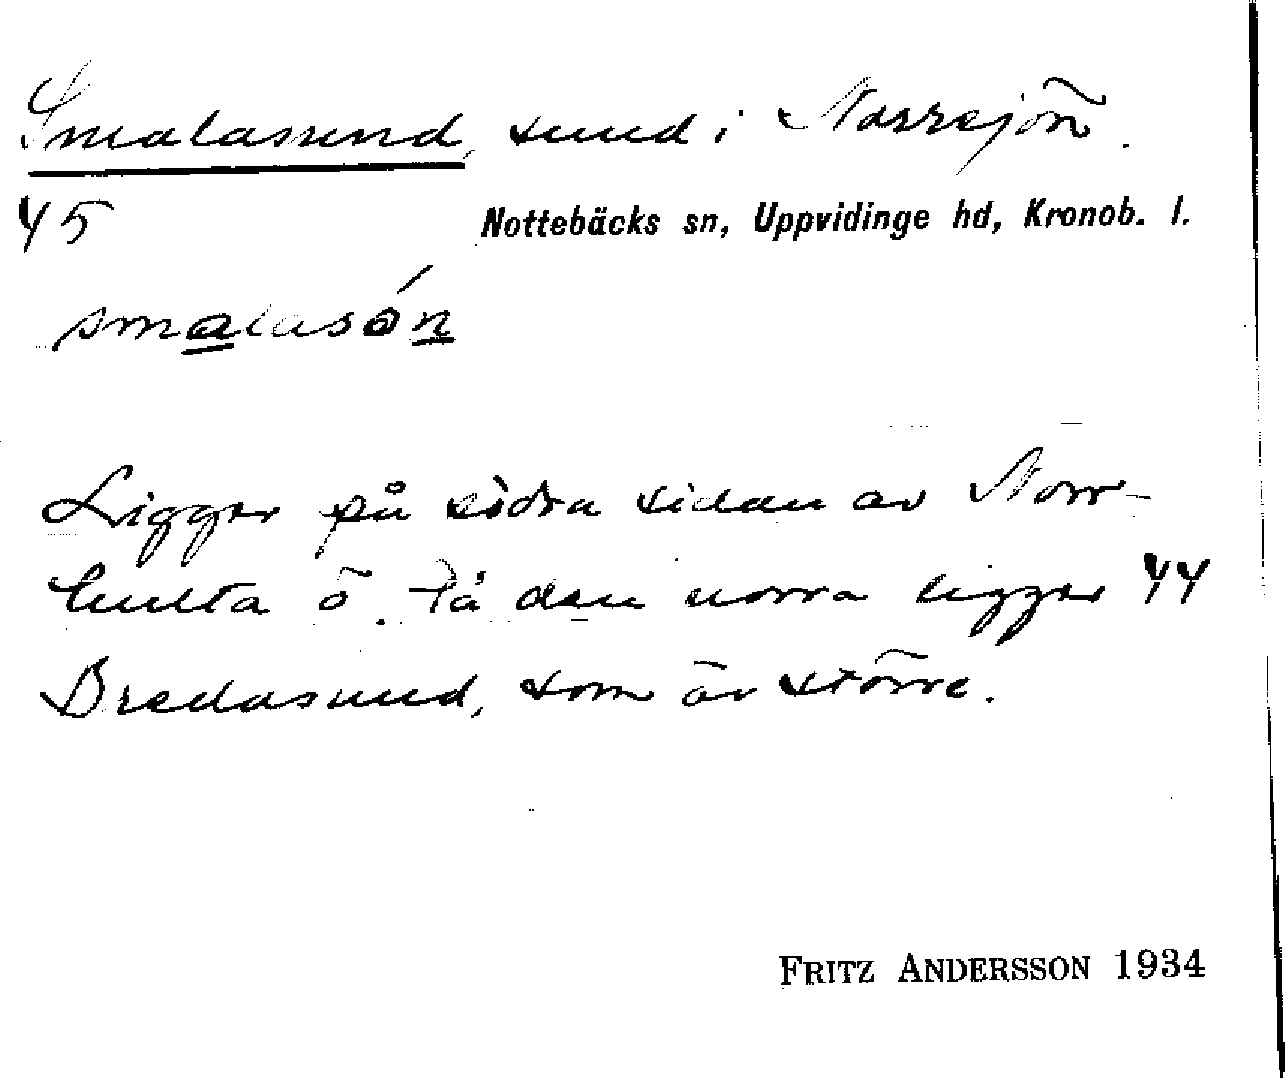 Smalasund, sund i Norrsjön.
45
Nottebäcks sn, Uppvidinge hd, Kronob. l.
smalasón
Ligger på södra sidan av Norr-
hulta ö. På den norra ligger 44
Bredasund, som är större.
FRITZ ANDERSSON 1934